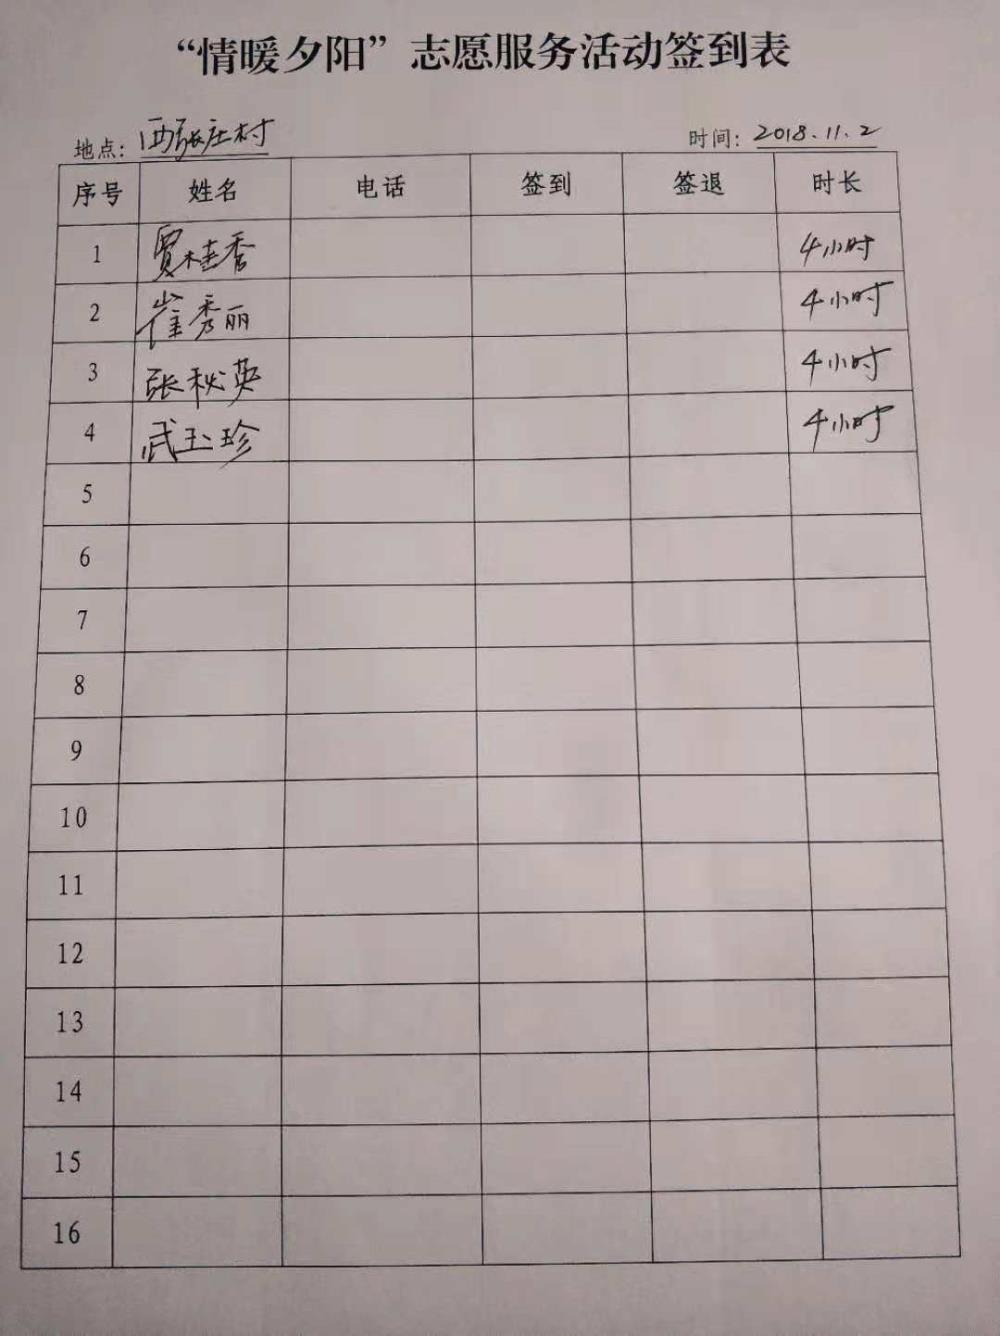 “情暖夕阳”志愿服务活动签到表
地点: 西张庄村 时间: 2018.11.2
序号 姓名 电话 签到 签退 时长
1 贾桂香 4小时
2 崔秀丽 4小时
3 张秋英 4小时
4 武玉珍 4小时
5
6
7
8
9
10
11
12
13
14
15
16